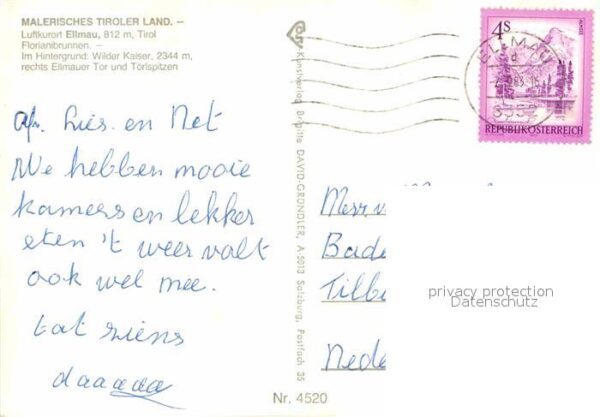 MALERISCHES TIROLER LAND. –
Luftkurort Ellmau, 812 m, Tirol
Florianibrunnen. –
Im Hintergrund: Wilder Kaiser, 2344 m,
rechts Ellmauer Tor und Törlspitzen
Lies en Net
We hebben mooie
kamers en lekker
eten 't weer valt
ook wel mee.
tot ziens
daaaaa
Kunstverlag Brigitte DAVID-GRÜNDLER, A-5013 Salzburg, Postfach 35
Nr. 4520
4S
ALMSEE
REPUBLIK ÖSTERREICH
ELLMAU
Mevr. v
Bade
Tilb
Nede
privacy protection
Datenschutz